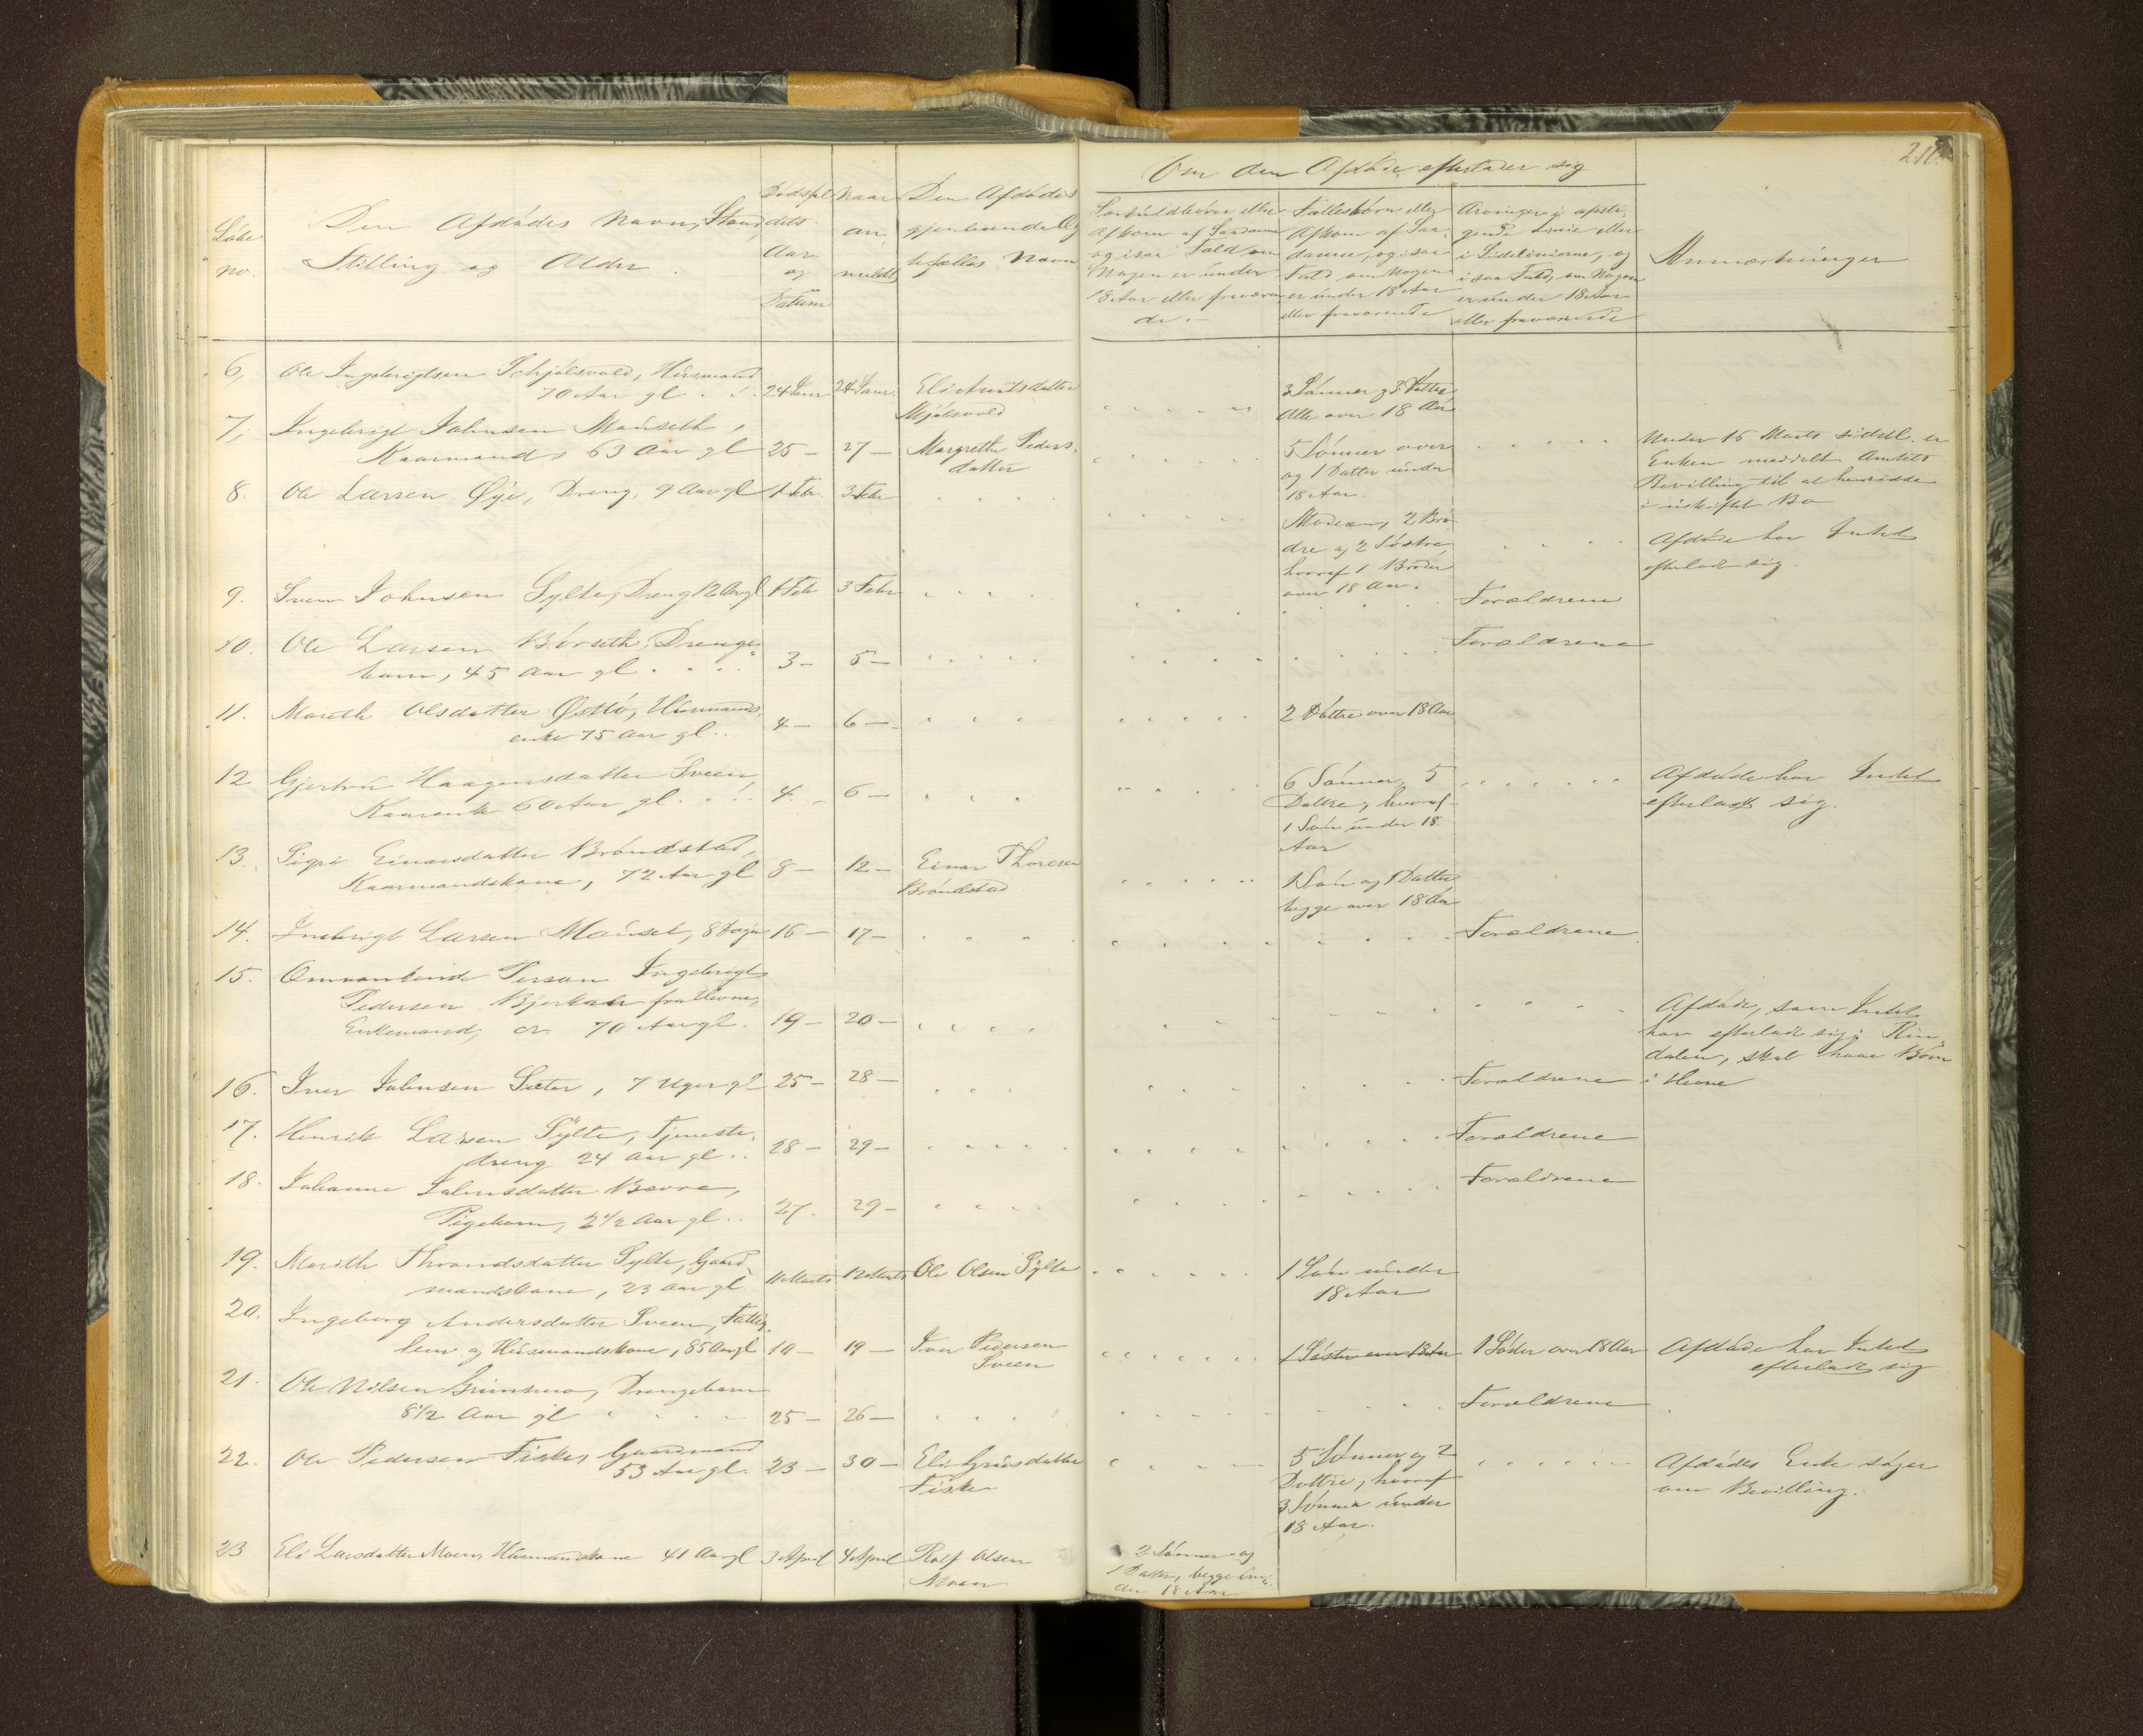 210.
Løbe
no.
Den Afdødes Navn, Stand,
Stilling og Alder
Dødsfal
dets
Aar
og
Datum
Naar
an
meldt
Den Afdødes
gjenlevende Æg
tefælles Navn
Om den Afdøde efterlader sig
Særkuldbørn eller
Afkom af Saadanne
og i saa Fald om
Nogen er under
18 Aar eller fraværen
de.
Fællesbørn eller
Afkom af Saa-
danne, og i saa
Fald om Nogen
er under 18 Aar
eller fraværende
Arvinger i opsti-
gende Linie eller
i Sidelinierne, og
i saa Fald, om Nogen
er under 18 Aar
eller fraværende
Anmærkninger
6, Ole Ingebrigtsen Schjølsvold, Husmand
70 Aar gl. 24 Janr 24 Janr. Eli Arntsdatter
Mjølsvold
3 Sønner og 3 Døttre
Alle over 18 Aar
7, Ingebrigt Johnsen Mauseth,
Kaarmand, 63 Aar gl 25 — 27 — Margrethe Peders-
datter
5 Sønner over
og 1 Datter under
18 Aar.
Under 15 Marts sidstl. er
Enken meddelt Amtets
Bevilling til at hensidde
i uskiftet Bo
8. Ole Larsen Øye, Dreng, 9 Aar gl 1 Febr. 3 Febr
Moderen, 2 Brø-
dre og 2 Søstre,
hvoraf 1 Broder
over 18 Aar.
Afdøde har Intet
efterladt sig.
9. Sven Johnsen Sylte, Dreng 12 Aar gl 1 Febr 3 Febr Forældrene
10. Ole Larsen Børseth, Drenge-
barn, 45 Aar gl 3 — 5 — Forældrene
11. Marith Olsdatter Østbø, Husmands-
enke 75 Aar gl. 4 — 6 — 2 Døttre over 18 Aar
12 Gjertru Haagensdatter Sveen,
Kaarenk 60 Aar gl. 4 — 6 —
6 Sønner, 5
Døttre, hvoraf
1 Søn under 18
Aar
Afdøde har Intet
efterladt sig.
13. Sigri Einarsdatter Brøndstad,
Kaarmandskone, 72 Aar gl 8 — 12 — Einar Thoresen
Brøndstad
1 Søn og 1 Datter
begge over 18 Aar
14. Ingebrigt Larsen Mauset, 8 Dage 16 — 17 — Forældrene
15. Omvankende Person Ingebrigt
Pedersen Bjerkali fra Hevne,
Enkemand, ca 70 Aar gl. 19 — 20 —
Afdøde, som Intet
har efterladt sig i Rin-
dalen, skal have Børn
i Hevne
16. Iver Johnsen Sæter, 7 Uger gl 25 — 28 — Forældrene
17. Henrik Larsen Sylte, Tjeneste-
dreng 24 Aar gl. 28 — 29 — Forældrene
18. Johanne Johnsdatter Bævre,
Pigebarn, 2 1/2 Aar gl. 27. 29 — Forældrene
19. Marith Throndsdatter Sylte, Gaard-
mandskone, 23 Aar gl 11 Marts 12 Marts Ole Olsen Sylte
1 Søn under
18 Aar
20. Ingeborg Andersdatter Sveen, Fattig-
lem og Husmandskone, 85 Aar gl 10 — 19 — Iver Pedersen
Sveen
1 Søster over 18 Aar 1 Søster over 18 Aar Afdøde har Intet
efterladt sig
21. Ole Nilsen Grimsmo, Drengebarn
8 1/2 Aar gl 25 — 26 — Forældrene
22. Ole Pedersen Fiske, Gaardmand
53 Aar gl. 23 — 30 — Eli Gunsdatter
Fiske
5 Sønner og 2
Døttre, hvoraf
3 Sønner under
18 Aar.
Afdødes Enke søger
om Bevilling.
23 Eli Larsdatter Moen, Husmandskone 41 Aar gl 3 April 4 April Rolf Olsen
Moen
2 Sønner og
1 Datter, begge un-
der 18 Aar